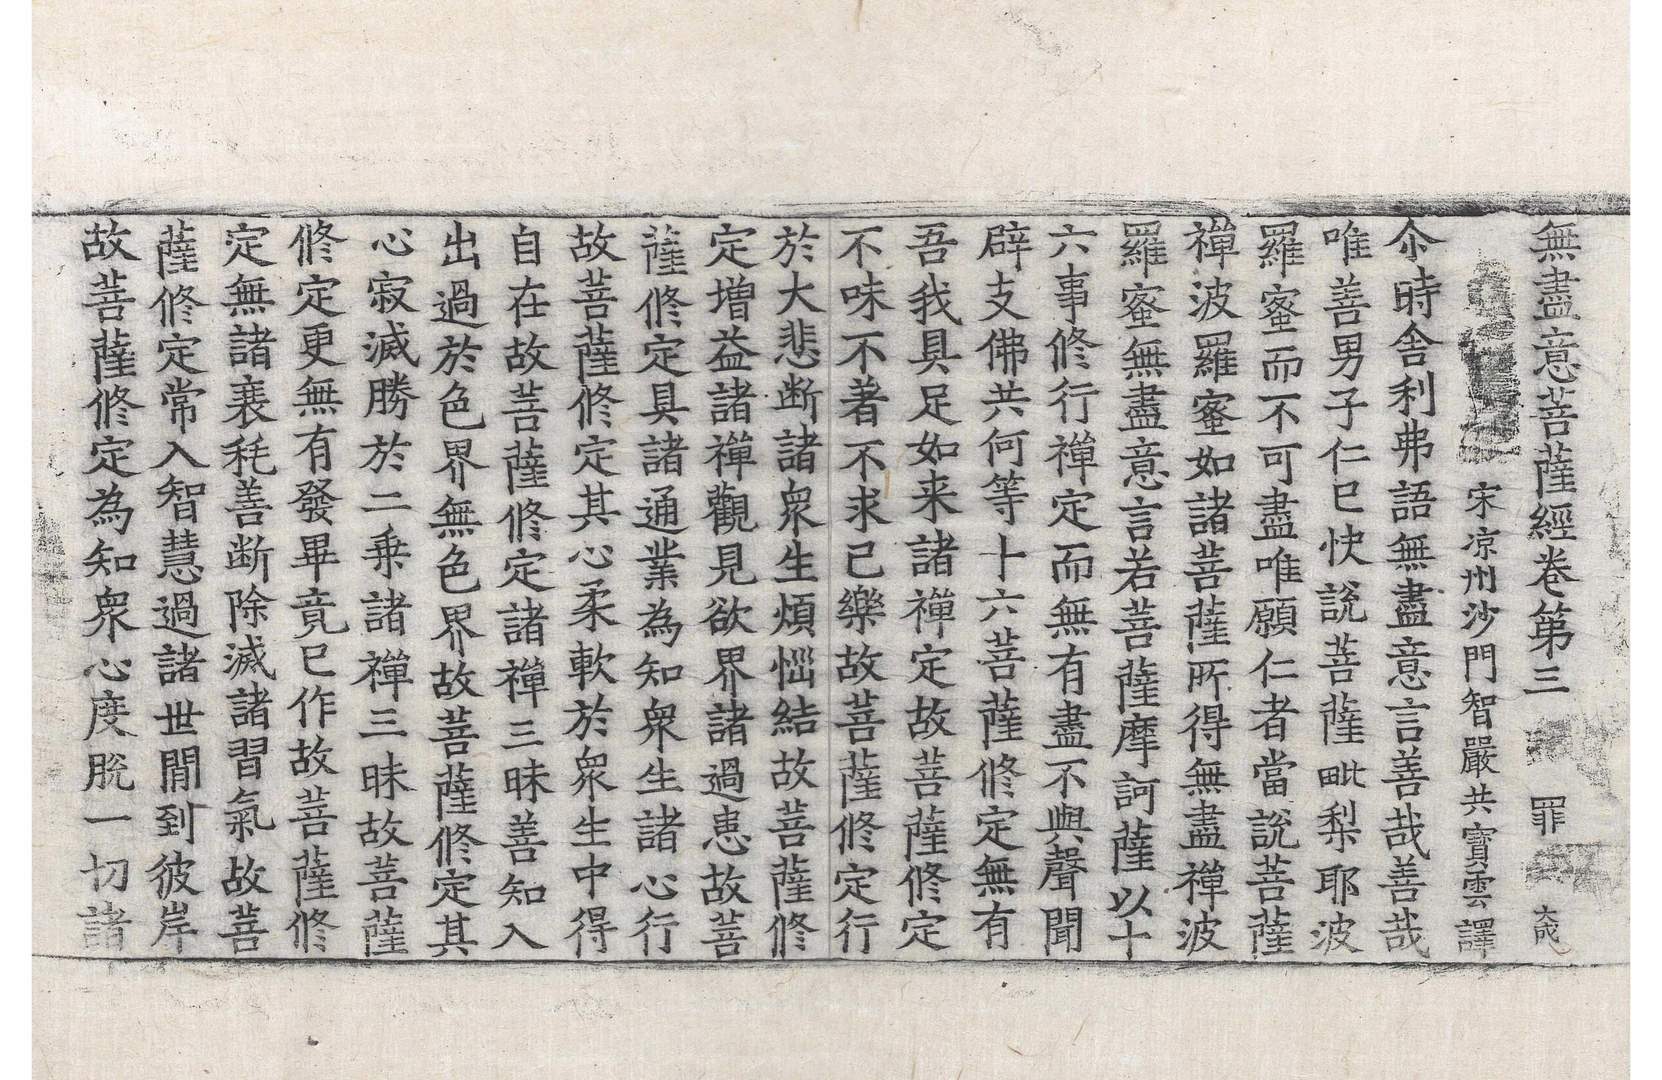 無盡意菩薩經卷第三 罪
宋凉州沙門智嚴共寶雲譯
尒時舍利弗語無盡意言善哉善哉
唯善男子仁已快說菩薩毗梨耶波
羅蜜而不可盡唯願仁者當說菩薩
禪波羅蜜如諸菩薩所得無盡禪波
羅蜜無盡意言若菩薩摩訶薩以十
六事修行禪定而無有盡不與聲聞
辟支佛共何等十六菩薩修定無有
吾我具足如来諸禪定故菩薩修定
不味不著不求己樂故菩薩修定行
於大悲断諸衆生煩惱結故菩薩修
定增益諸禪觀見欲界諸過患故菩
薩修定具諸通業為知衆生諸心行
故菩薩修定其心柔軟於衆生中得
自在故菩薩修定諸禪三昧善知入
出過於色界無色界故菩薩修定其
心寂滅勝於二乗諸禪三昧故菩薩
修定更無有發畢竟已作故菩薩修
定無諸衰耗善断除滅諸習氣故菩
薩修定常入智慧過諸世間到彼岸
故菩薩修定為知衆心度脫一切諸